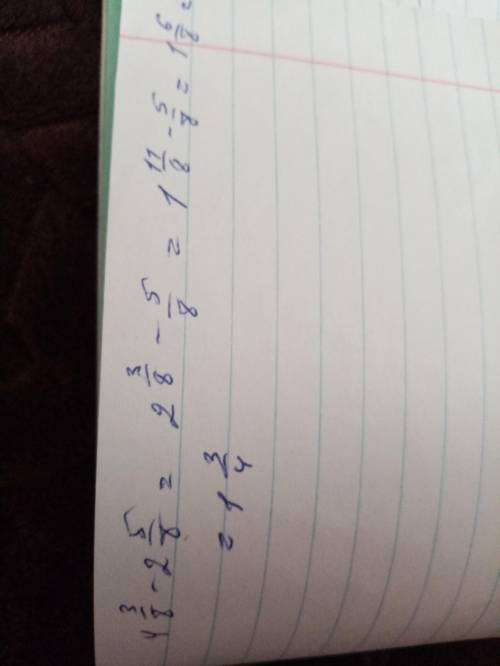 4 3/8 - 2 5/8 = 2 3/8 - 5/8 = 1 11/8 - 5/8 = 1 6/8 =
= 1 3/4